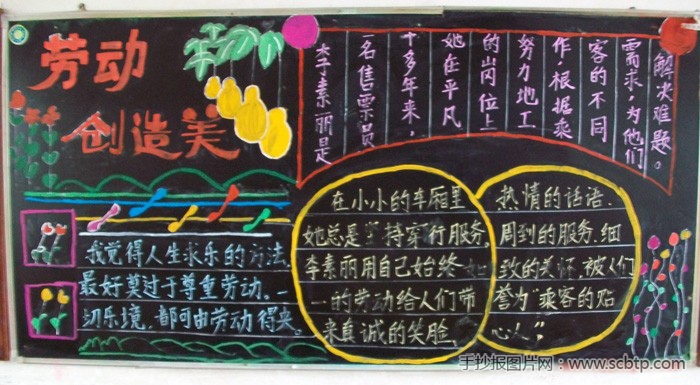 劳动
创造美
李素丽是
一名售票员
十多年来,
她在平凡
的岗位上
努力地工
作,根据乘
客的不同
需求,为他们
解决难题。
我觉得人生求乐的方法,
最好莫过于尊重劳动.
切乐境,都可由劳动得来。
在小小的车厢里
她总是坚持穿行服务,
李素丽用自己始终如
一的劳动给人们带
来真诚的笑脸,
热情的话语.
周到的服务.细
致的关怀.被人们
誉为"乘客的贴
心人"
手抄报图片网:www.scbtp.com